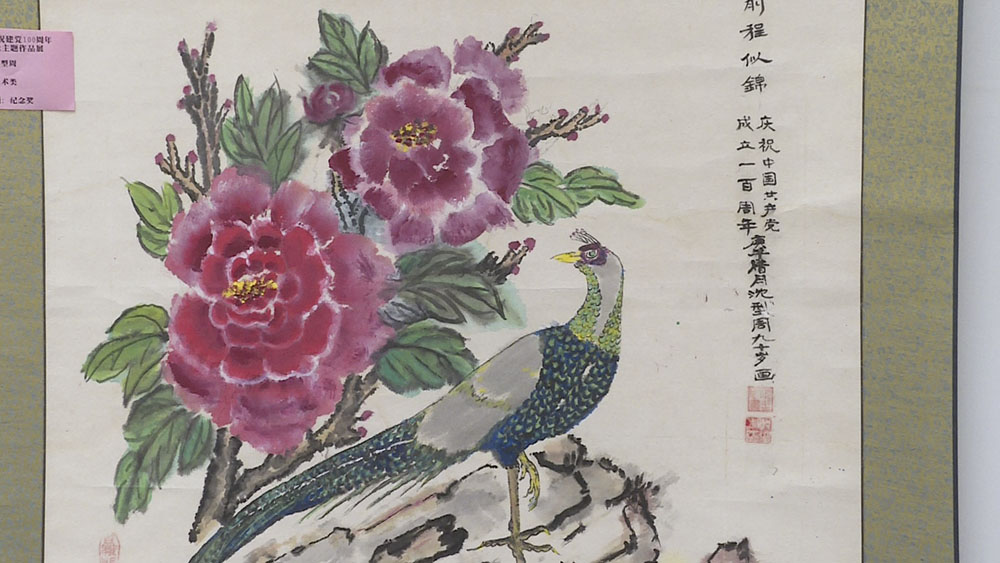 祝建党100周年
主题作品展
型周
术类
：纪念奖
前程似錦
庆祝中国共产党
成立一百周年
沈型周九十岁画